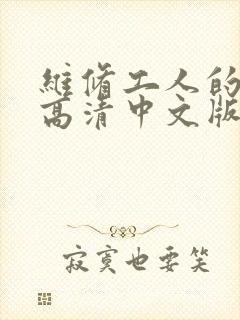 维修工人的
高清中文版
寂寞也要笑